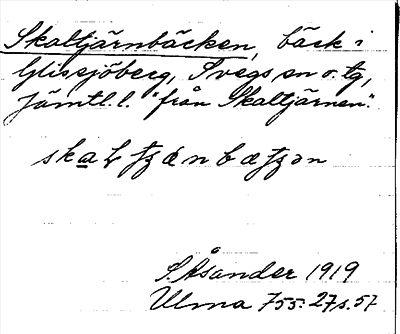 Skaltjärnbäcken, bäck i
Glissjöberg, Svegs sn o. tg,
Jämtl. l. "från Skaltjärnen".
skaḷtjæ̣nbætjən
S. Åsander 1919
Ulma 755:27 s. 57